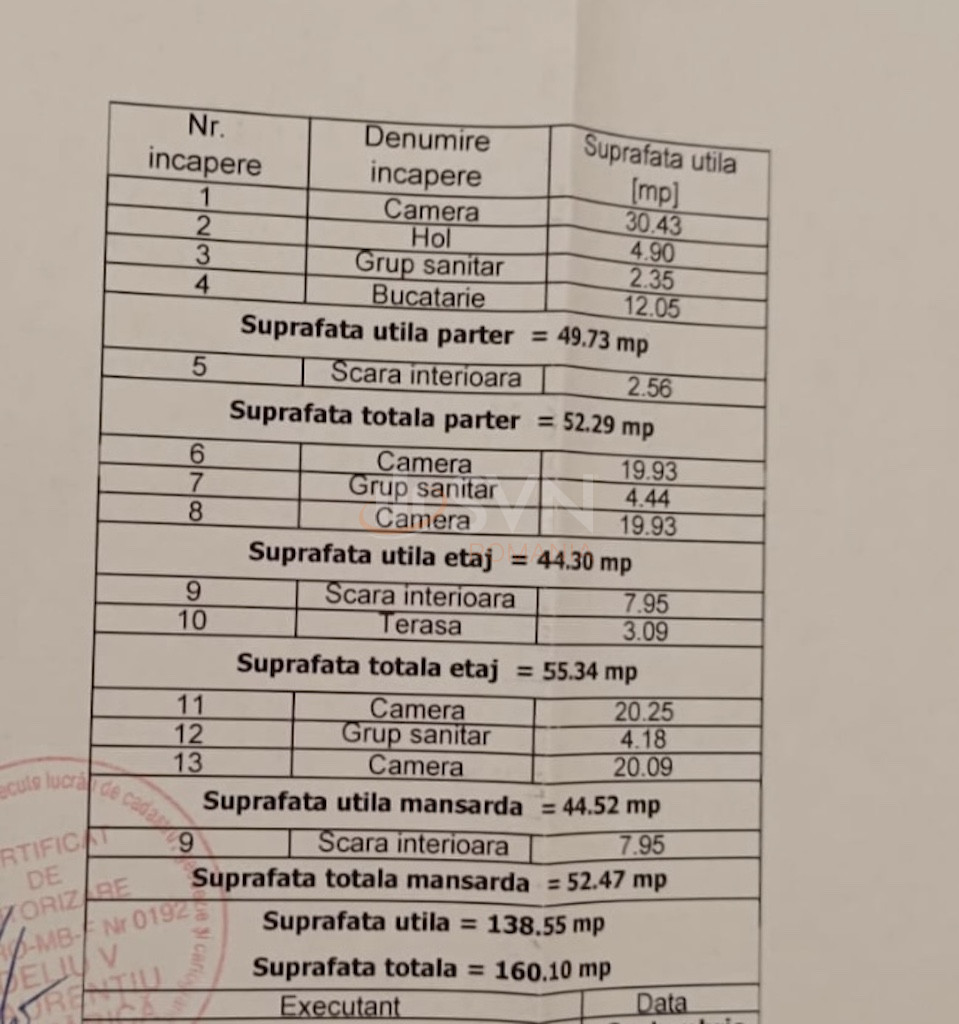 Nr. incapere Denumire incapere Suprafata utila [mp]
1 Camera 30.43
2 Hol 4.90
3 Grup sanitar 2.35
4 Bucatarie 12.05
Suprafata utila parter = 49.73 mp
5 Scara interioara 2.56
Suprafata totala parter = 52.29 mp
6 Camera 19.93
7 Grup sanitar 4.44
8 Camera 19.93
SVN
ROMANIA
Suprafata utila etaj = 44.30 mp
9 Scara interioara 7.95
10 Terasa 3.09
Suprafata totala etaj = 55.34 mp
11 Camera 20.25
12 Grup sanitar 4.18
13 Camera 20.09
Suprafata utila mansarda = 44.52 mp
9 Scara interioara 7.95
Suprafata totala mansarda = 52.47 mp
Suprafata utila = 138.55 mp
Suprafata totala = 160.10 mp
Executant Data
de cadastru
RTIFICAT
DE
TORIZARE
RO-MB-F Nr 0192
DELIU V